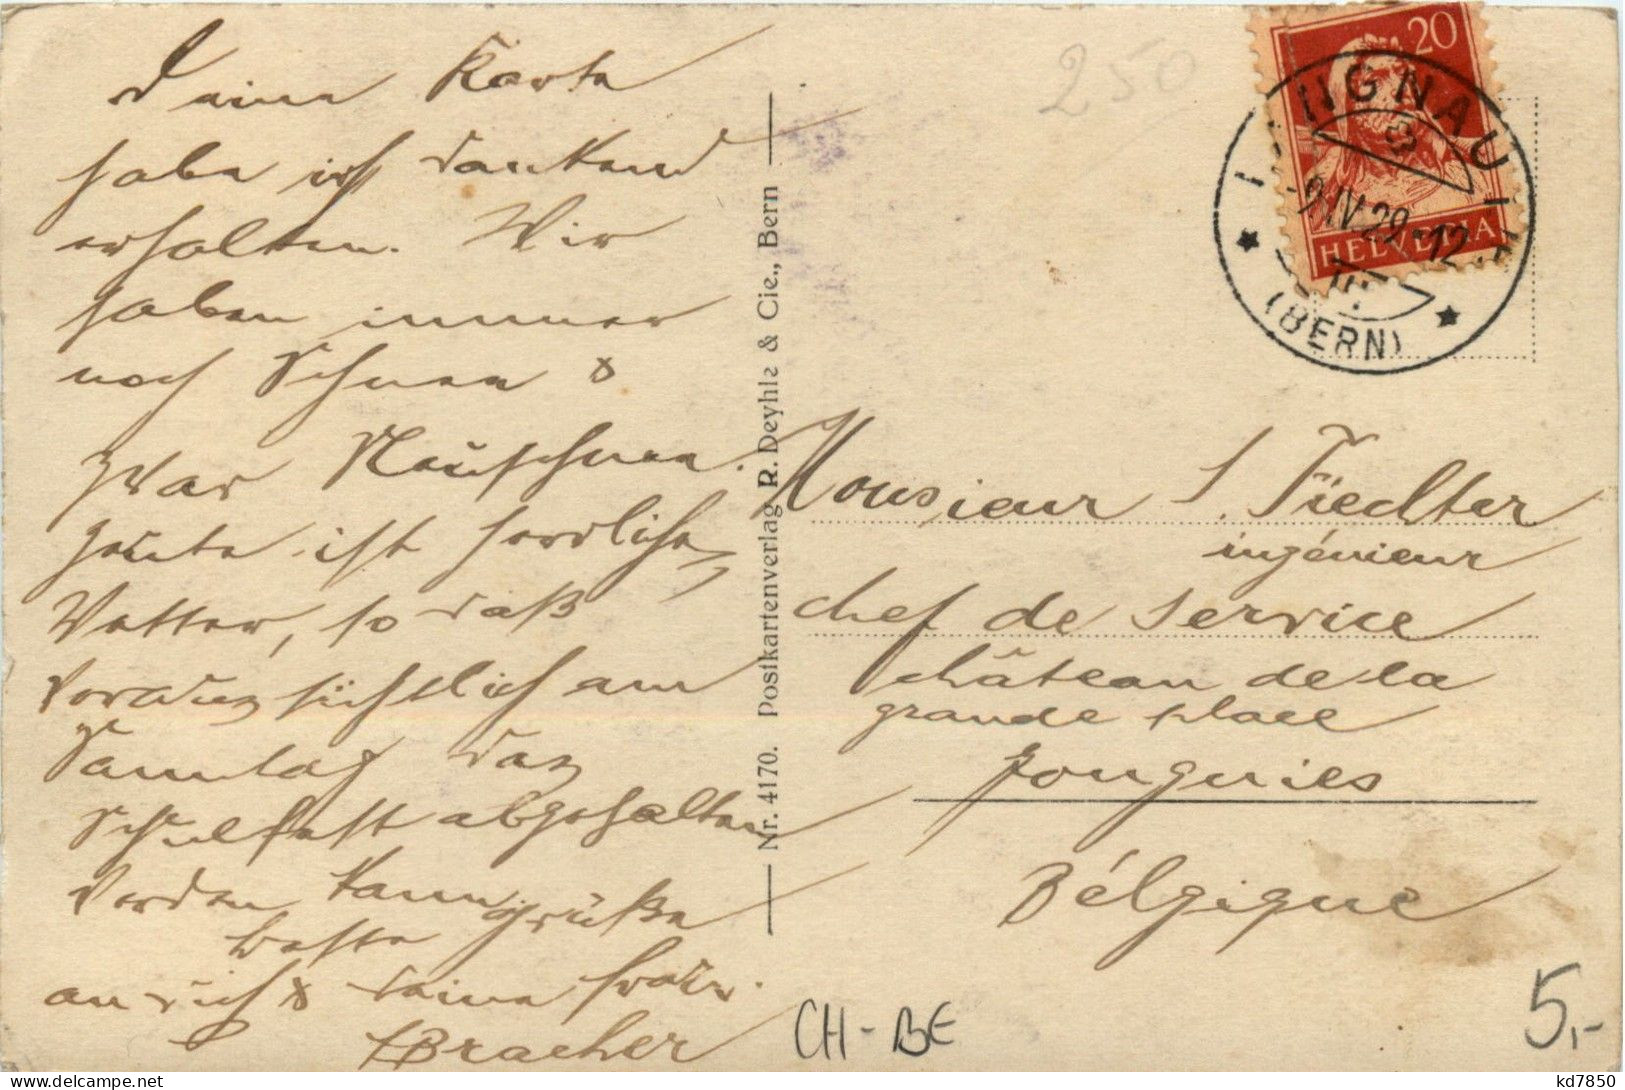 Deine Karte
habe ich dankend
erhalten. Wir
haben immer
noch Schnee &
zwar Neuschnee.
Heute ist herrliches
Wetter, so daß
voraussichtlich am
Samstag das
Schulfest abgehalten
werden kann
beste Grüße
an dich & deine Frau.
Bracher
Nr. 4170. Postkartenverlag R. Deyhle & Cie., Bern
250
20
HELVETIA
9.IV.29-12
(BERN)
Monsieur J. Fiedlter
ingénieur
chef de service
château de la
grande place
Bélgique
CH-BE
5,-
kd7850